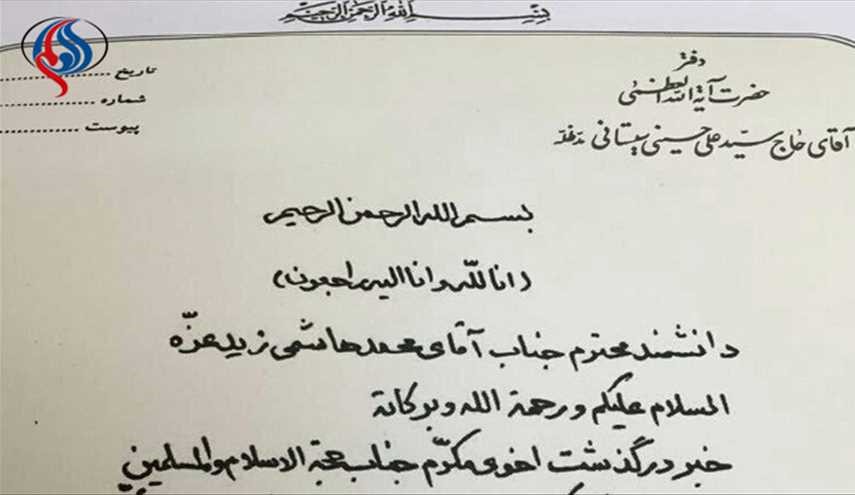 بسم الله الرحمن الرحیم
دفتر
حضرت آیة الله العظمی
آقای حاج سید علی حسینی سیستانی مدظله
تاریخ ....................
شماره ....................
پیوست ....................
بسم الله الرحمن الرحیم
(انا لله و انا الیه راجعون)
دانشمند محترم جناب آقای محمد هاشمی زید عزّه
السلام علیکم و رحمة الله و برکاته
خبر درگذشت اخوی مکرّم جناب حجة الاسلام والمسلمین